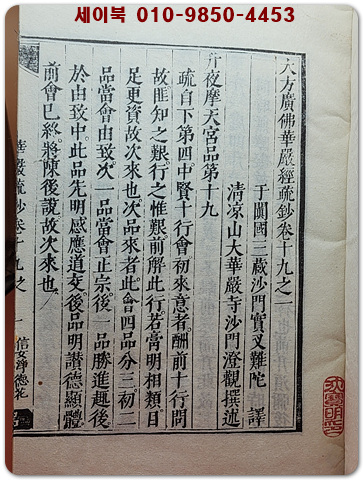 세이북 010-9850-4453
大方廣佛華嚴經疏鈔卷十九之一
于闐國三藏沙門實叉難陀 譯
清凉山大華嚴寺沙門澄觀撰述
升夜摩天宮品第十九
疏自下第四中賢十行會初來意者。酬前十行問
故匪知之艱。行之惟艱前解此行。若當明相類目
足更資故次來也。次品來者此會四品分三。初二
品當會由致。次一品當會正宗後一品勝進趣後
於由致中。此品先明感應道交後品明讃德顯體
前會已終。將陳後說。故次來也。
華嚴疏鈔卷十九之一
一
信女淨德花